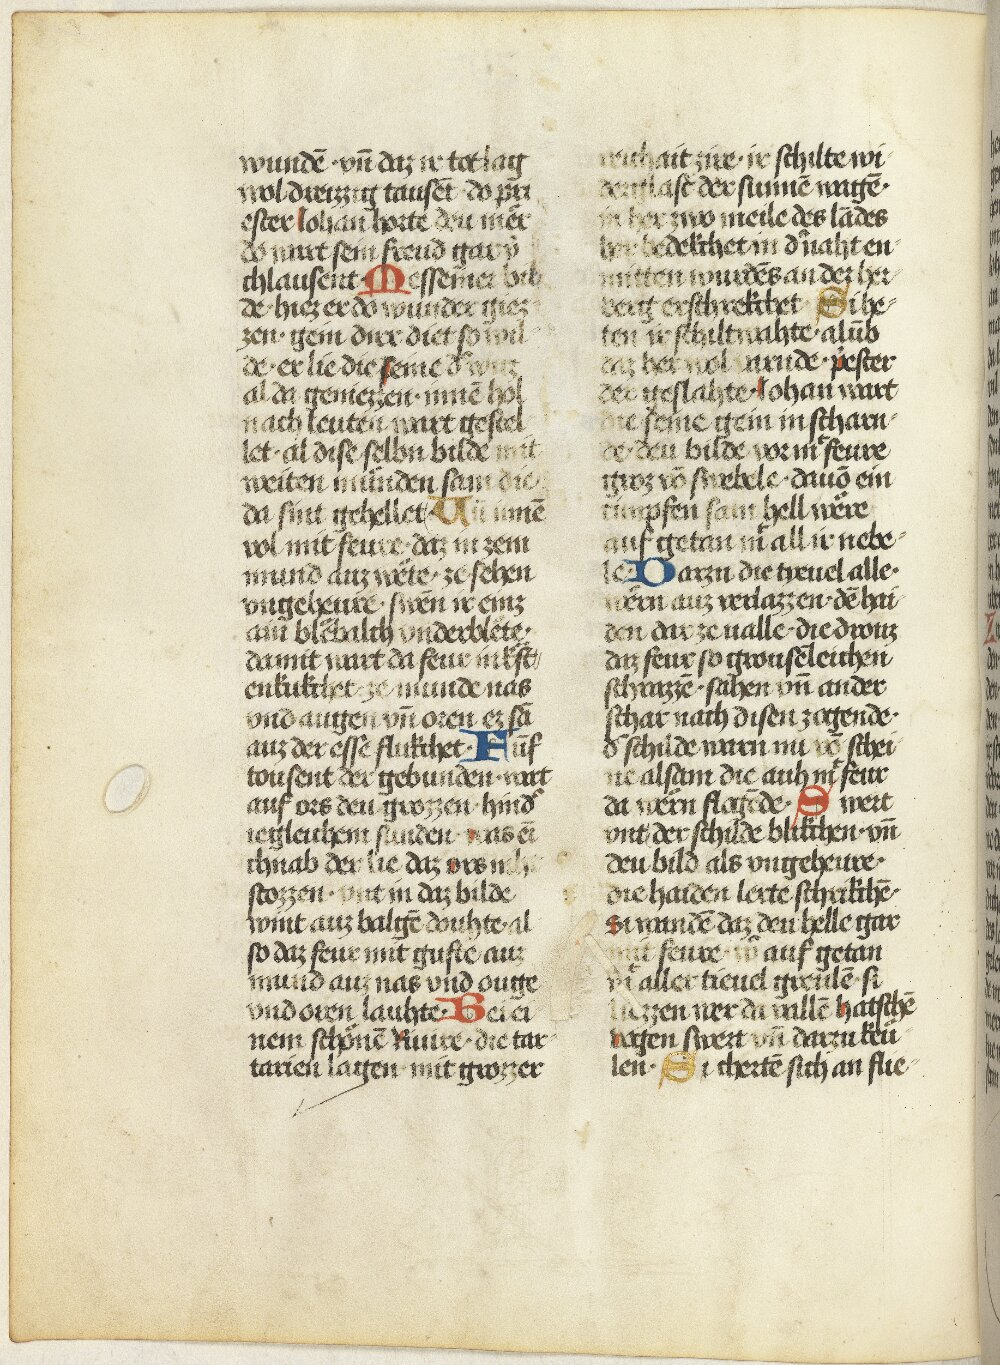 wundē · vn̄ daz ir tot lag
wol dreizzig tausēt · do pri
ester Johan horte deu mer
do wart sein freud gar
chlausent · Messeiner bil
de · hiez er do wunder giez
zen · gein dirr diet so wil
de · er lie die seine
al da geniezzen · innē hol
nach leuten wart gestel
let · al dise selbn bilde mit
weiten münden sam die
da sint gehellet · innē
vol mit feure · daz in zem
mund auz wete · ze sehen
vngeheure · swēn ir einz
ain blēbalch vnderblete ·
damit wart da feur
enkukchet · ze munde nas
vnd augen vn̄ oren ez sā
auz der esse flukchet · Fūf
tousent der gebunden · wart
auf ors deu grozzen · hind
iegleichem stunden · was ei
chnab der lie daz ors
stozzen · vnt in daz bilde
wint auz balgē douhte · al
so daz feur mit gufte auz
mund auz nas vnd ouge
vnd oren lauhte · Bei ei
nem schönē Riuire · die tar
tarien lagen · mit grozzer
zire · ir schilte wi
der glast der sunnē wagē ·
in her zwo meile des lādes
bedekchet in d' naht en
mitten wurdēs an der her
berg erschrekchet · Si he
ten ir schiltwahte · al ūb
daz her wol · priester
der geslahte · Johan wart
die seine gein in scharn
de · deu bilde vor mit feure
groz vō swebele · dauō ein
timpfen sam hell were
auf getan mit all ir nebe
le · Darzu die tyeuel alle ·
wern auz verlazzen · dē hai
den dar ze ualle · die drouz
daz feur so grousēleichen
schrazzē · sahen vn̄ ander
schar nach disen zogende ·
d' schilde warn nu vō schei
ne alsam die auh mit feur
da wern flogēde · S wert
vnt der schilde blikchen · vn̄
deu bild als vngeheure ·
die haiden lerte schrikchē ·
si wandē daz deu helle gar
mit feure · auf getan
vn̄ aller tieuel greulē · si
liezzen wer da wallē hatschē
wogen swert vn̄ darzu keu
len · Si chertē sich an flie